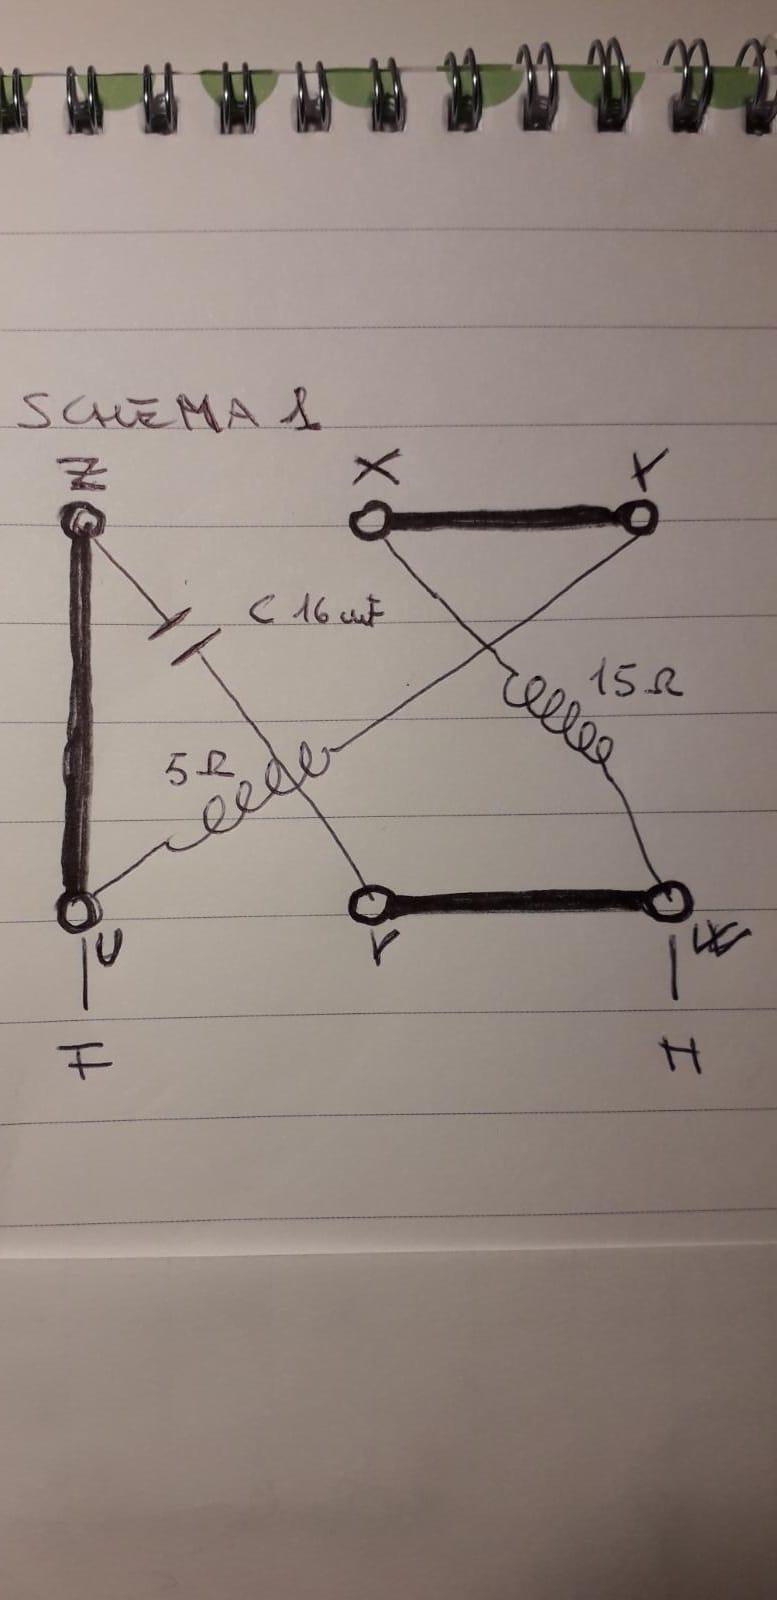 SCHEMA 1
Z X Y
C 16 mF
15 Ω
5 Ω
U V
F H